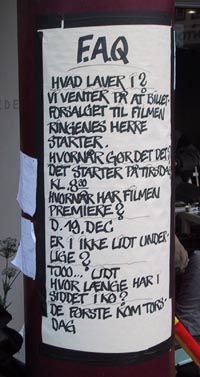 F.A.Q
HVAD LAVER I?
VI VENTER PÅ AT BILLET-
FORSALGET TIL FILMEN
RINGENES HERRE
STARTER.
HVORNÅR GØR DET DET?
DET STARTER PÅ TIRSDAG
KL. 8.00
HVORNÅR HAR FILMEN
PREMIERE?
D. 19. DEC
ER I IKKE LIDT UNDER-
LIGE?
TJOO... LIDT
HVOR LÆNGE HAR I
SIDDET I KØ?
DE FØRSTE KOM TORS-
DAG